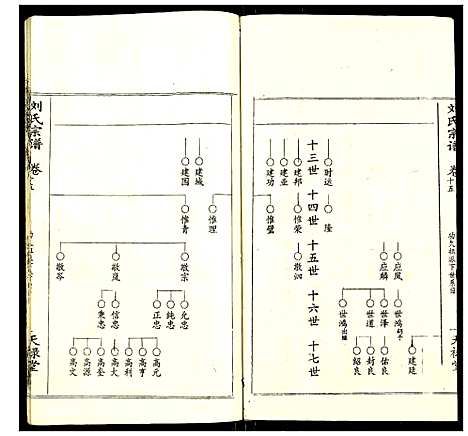 刘氏宗谱
卷十五
一
天禄堂
时远
隆
应凤
应麟
世鸿
世泽
世道
世鸿出继
建廷
佑良
封良
绍良
十三世 十四世 十五世 十六世 十七世
建邦
建亚
建功
惟荣
惟璧
敬泗
刘氏宗谱
天禄堂
建城
建国
惟理
惟青
敬宗
敬岚
敬岑
允忠
纯忠
正忠
信忠
秉忠
高元
高亨
高利
高大
高奎
高源
高文